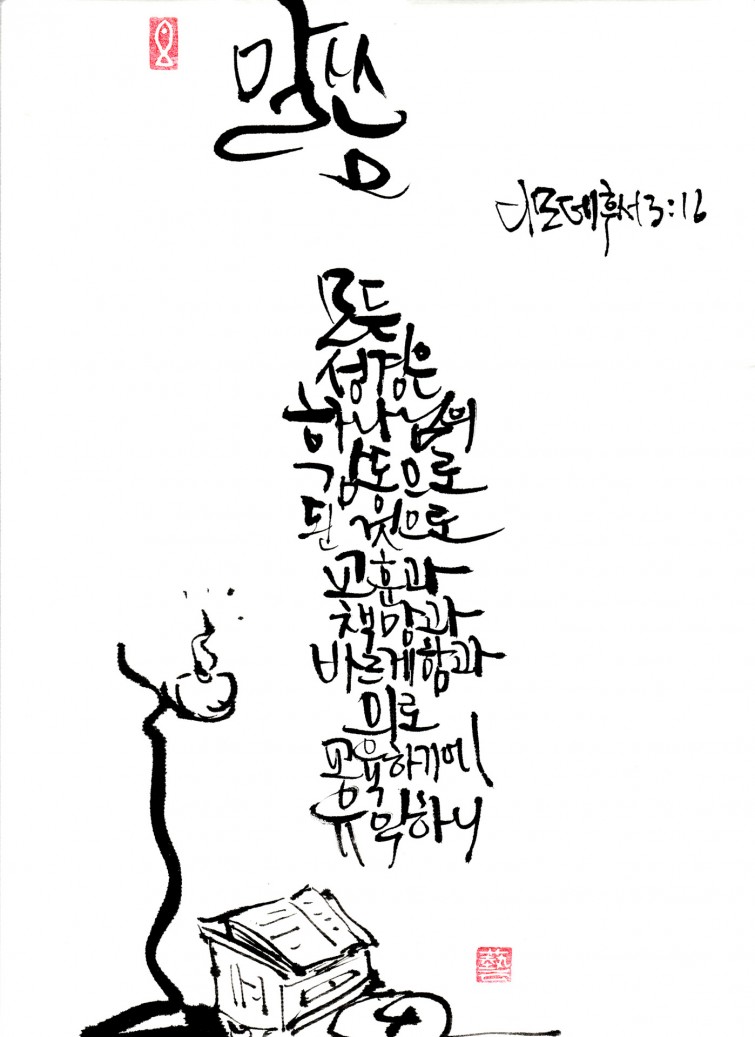 말씀
디모데후서 3:16
모든
성경은
하나님의
감동으로
된 것으로
교훈과
책망과
바르게함과
의로
교육하기에
유익하니
藝